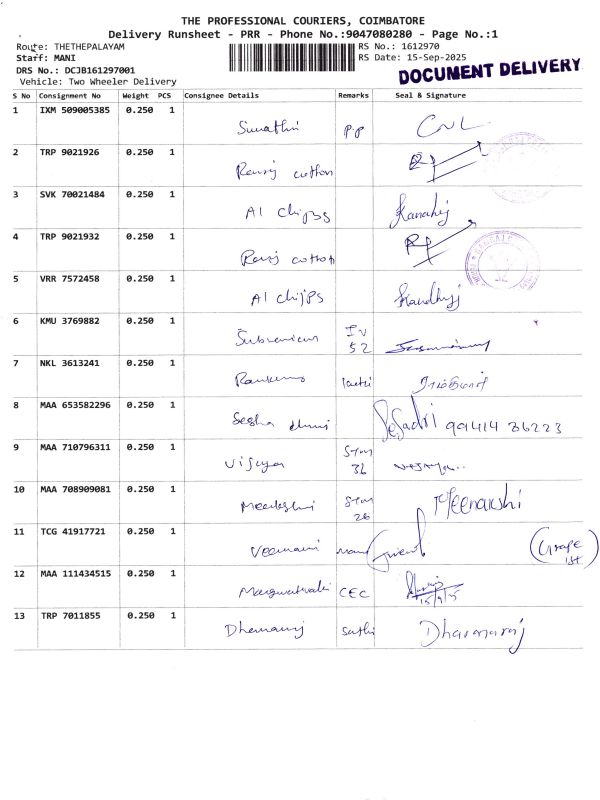 THE PROFESSIONAL COURIERS, COIMBATORE
Delivery Runsheet - PRR - Phone No.:9047080280 - Page No.:1
Route: THETHEPALAYAM
Staff: MANI
DRS No.: DCJB161297001
Vehicle: Two Wheeler Delivery
RS No.: 1612970
RS Date: 15-Sep-2025
DOCUMENT DELIVERY
S No Consignment No Weight PCS Consignee Details Remarks Seal & Signature
1 IXM 509005385 0.250 1 Sumathi P.P CNL
2 TRP 9021926 0.250 1 cotton
3 SVK 70021484 0.250 1 AI chips
4 TRP 9021932 0.250 1 cotton
5 VRR 7572458 0.250 1 AI chips
6 KMU 3769882 0.250 1 52
7 NKL 3613241 0.250 1
8 MAA 653582296 0.250 1 Sesha SeSadri 99414 36223
9 MAA 710796311 0.250 1 Vijaya 36
10 MAA 708909081 0.250 1 Meenakshi 26 Meenakshi
11 TCG 41917721 0.250 1 Veemani (Grape 1st)
12 MAA 111434515 0.250 1 CEC 15/9/25
13 TRP 7011855 0.250 1 Dhamaraj Sathi Dharmaraj